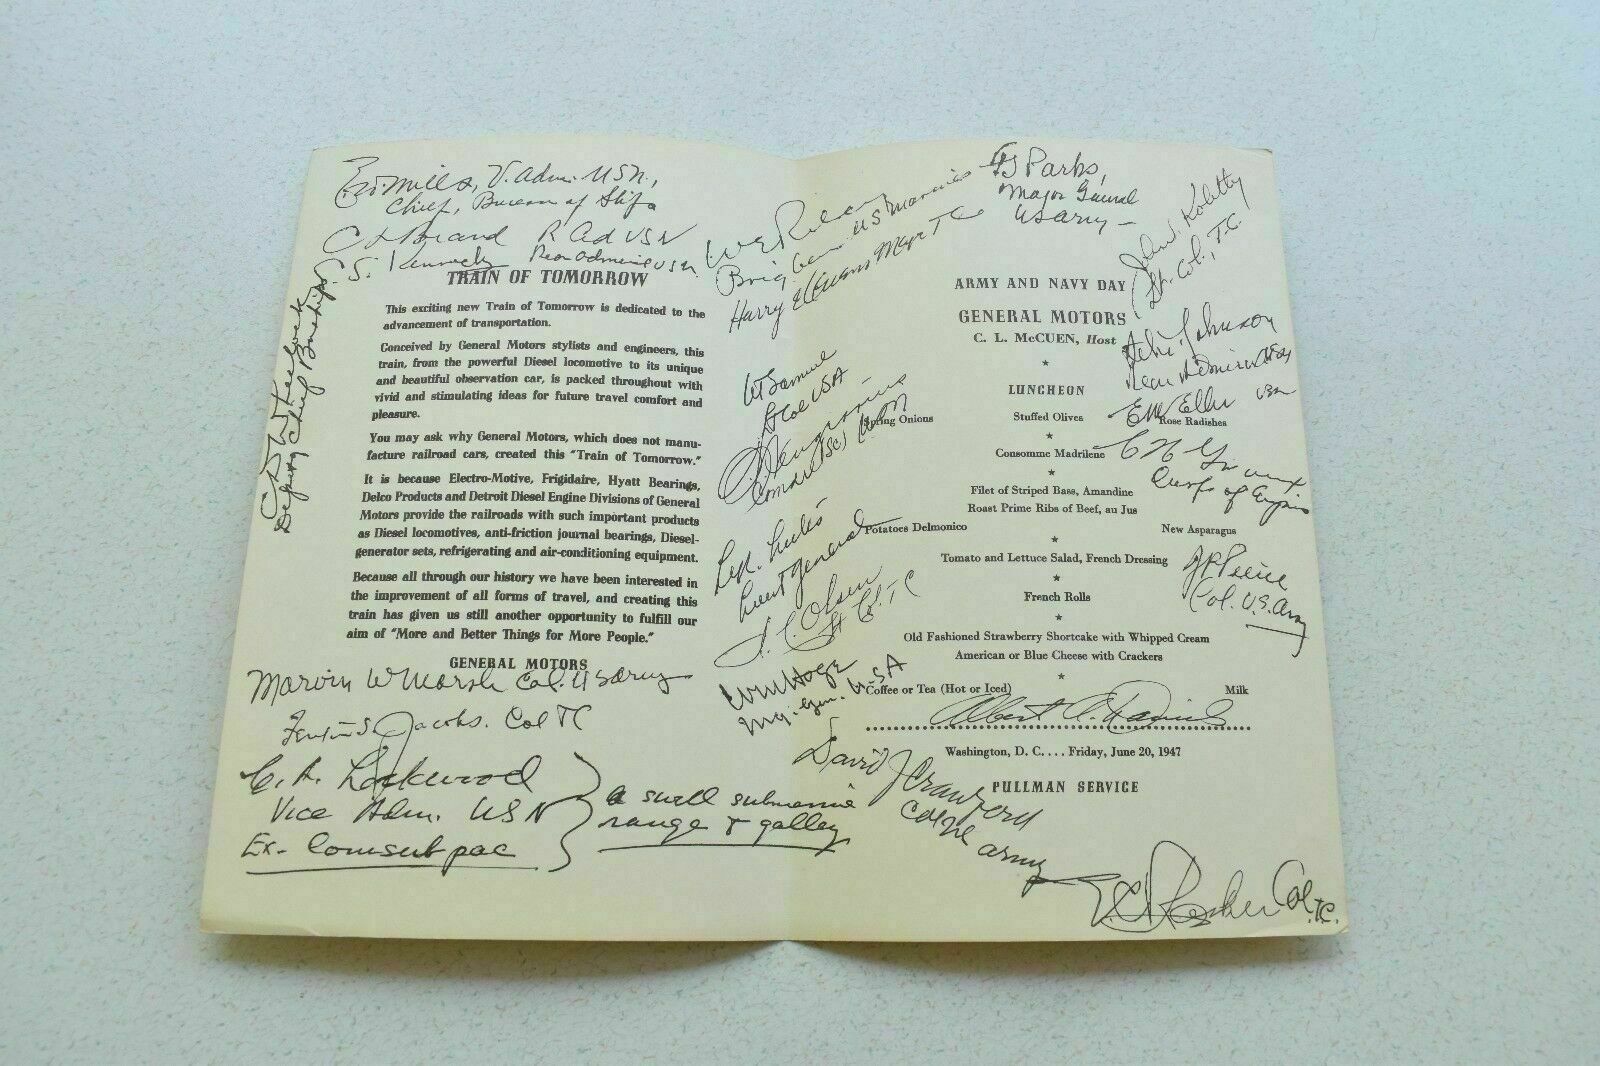 V. Adm. USN.,
Chief, Bureau of Ships
R Ad USN
C. S.
Rear Admiral USN.
Deputy Chief BuShips
TRAIN OF TOMORROW
This exciting new Train of Tomorrow is dedicated to the
advancement of transportation.
Conceived by General Motors stylists and engineers, this
train, from the powerful Diesel locomotive to its unique
and beautiful observation car, is packed throughout with
vivid and stimulating ideas for future travel comfort and
pleasure.
You may ask why General Motors, which does not manu-
facture railroad cars, created this "Train of Tomorrow."
It is because Electro-Motive, Frigidaire, Hyatt Bearings,
Delco Products and Detroit Diesel Engine Divisions of General
Motors provide the railroads with such important products
as Diesel locomotives, anti-friction journal bearings, Diesel-
generator sets, refrigerating and air-conditioning equipment.
Because all through our history we have been interested in
the improvement of all forms of travel, and creating this
train has given us still another opportunity to fulfill our
aim of "More and Better Things for More People."
GENERAL MOTORS
Marvin W Marsh Col. US Army
Jacobs. Col TC
C. A. Lockwood
Vice Adm. USN
Ex- Comsubpac
a swell submarine
range & galley
Brig Gen US Marines
Harry E Evans Major TC
WT Samuel
Lt Col USA
Lieut General
Olsen
Lt Col. TC
Wm Hoge
Maj. Gen. USA
David J Crawford
Col US army
Parks,
Major General
US Army
John J.
Lt. Col., T.C.
ARMY AND NAVY DAY
GENERAL MOTORS
C. L. McCUEN, Host
Johnson
Rear Admiral USN
LUNCHEON
Stuffed Olives
Spring Onions
Rose Radishes
USN
Consomme Madrilene
Corps of Engrs
Filet of Striped Bass, Amandine
Roast Prime Ribs of Beef, au Jus
Potatoes Delmonico
New Asparagus
Tomato and Lettuce Salad, French Dressing
Col. U.S. Army
French Rolls
Old Fashioned Strawberry Shortcake with Whipped Cream
American or Blue Cheese with Crackers
Coffee or Tea (Hot or Iced)
Milk
Albert
Washington, D. C. . . . . Friday, June 20, 1947
PULLMAN SERVICE
Col. TC.